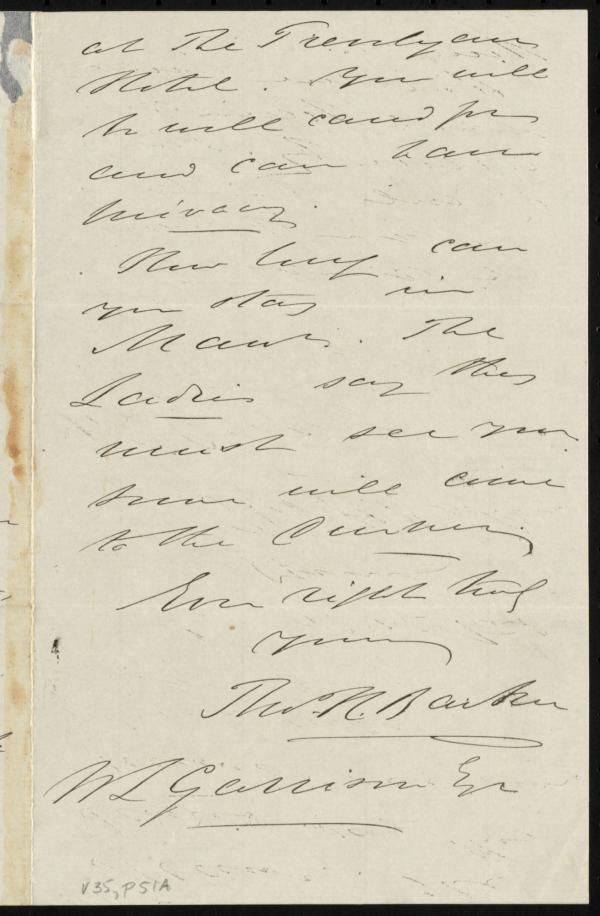 at the Trevelyan
Hotel. You will
be well cared for
and can have
privacy.
How long can
you stay in
Manr. The
Ladies say they
must see you.
some will come
to the Dinner,
Ever right truly
yours
Thos. H. Barker
W L Garrison Esqr
V35, P51A